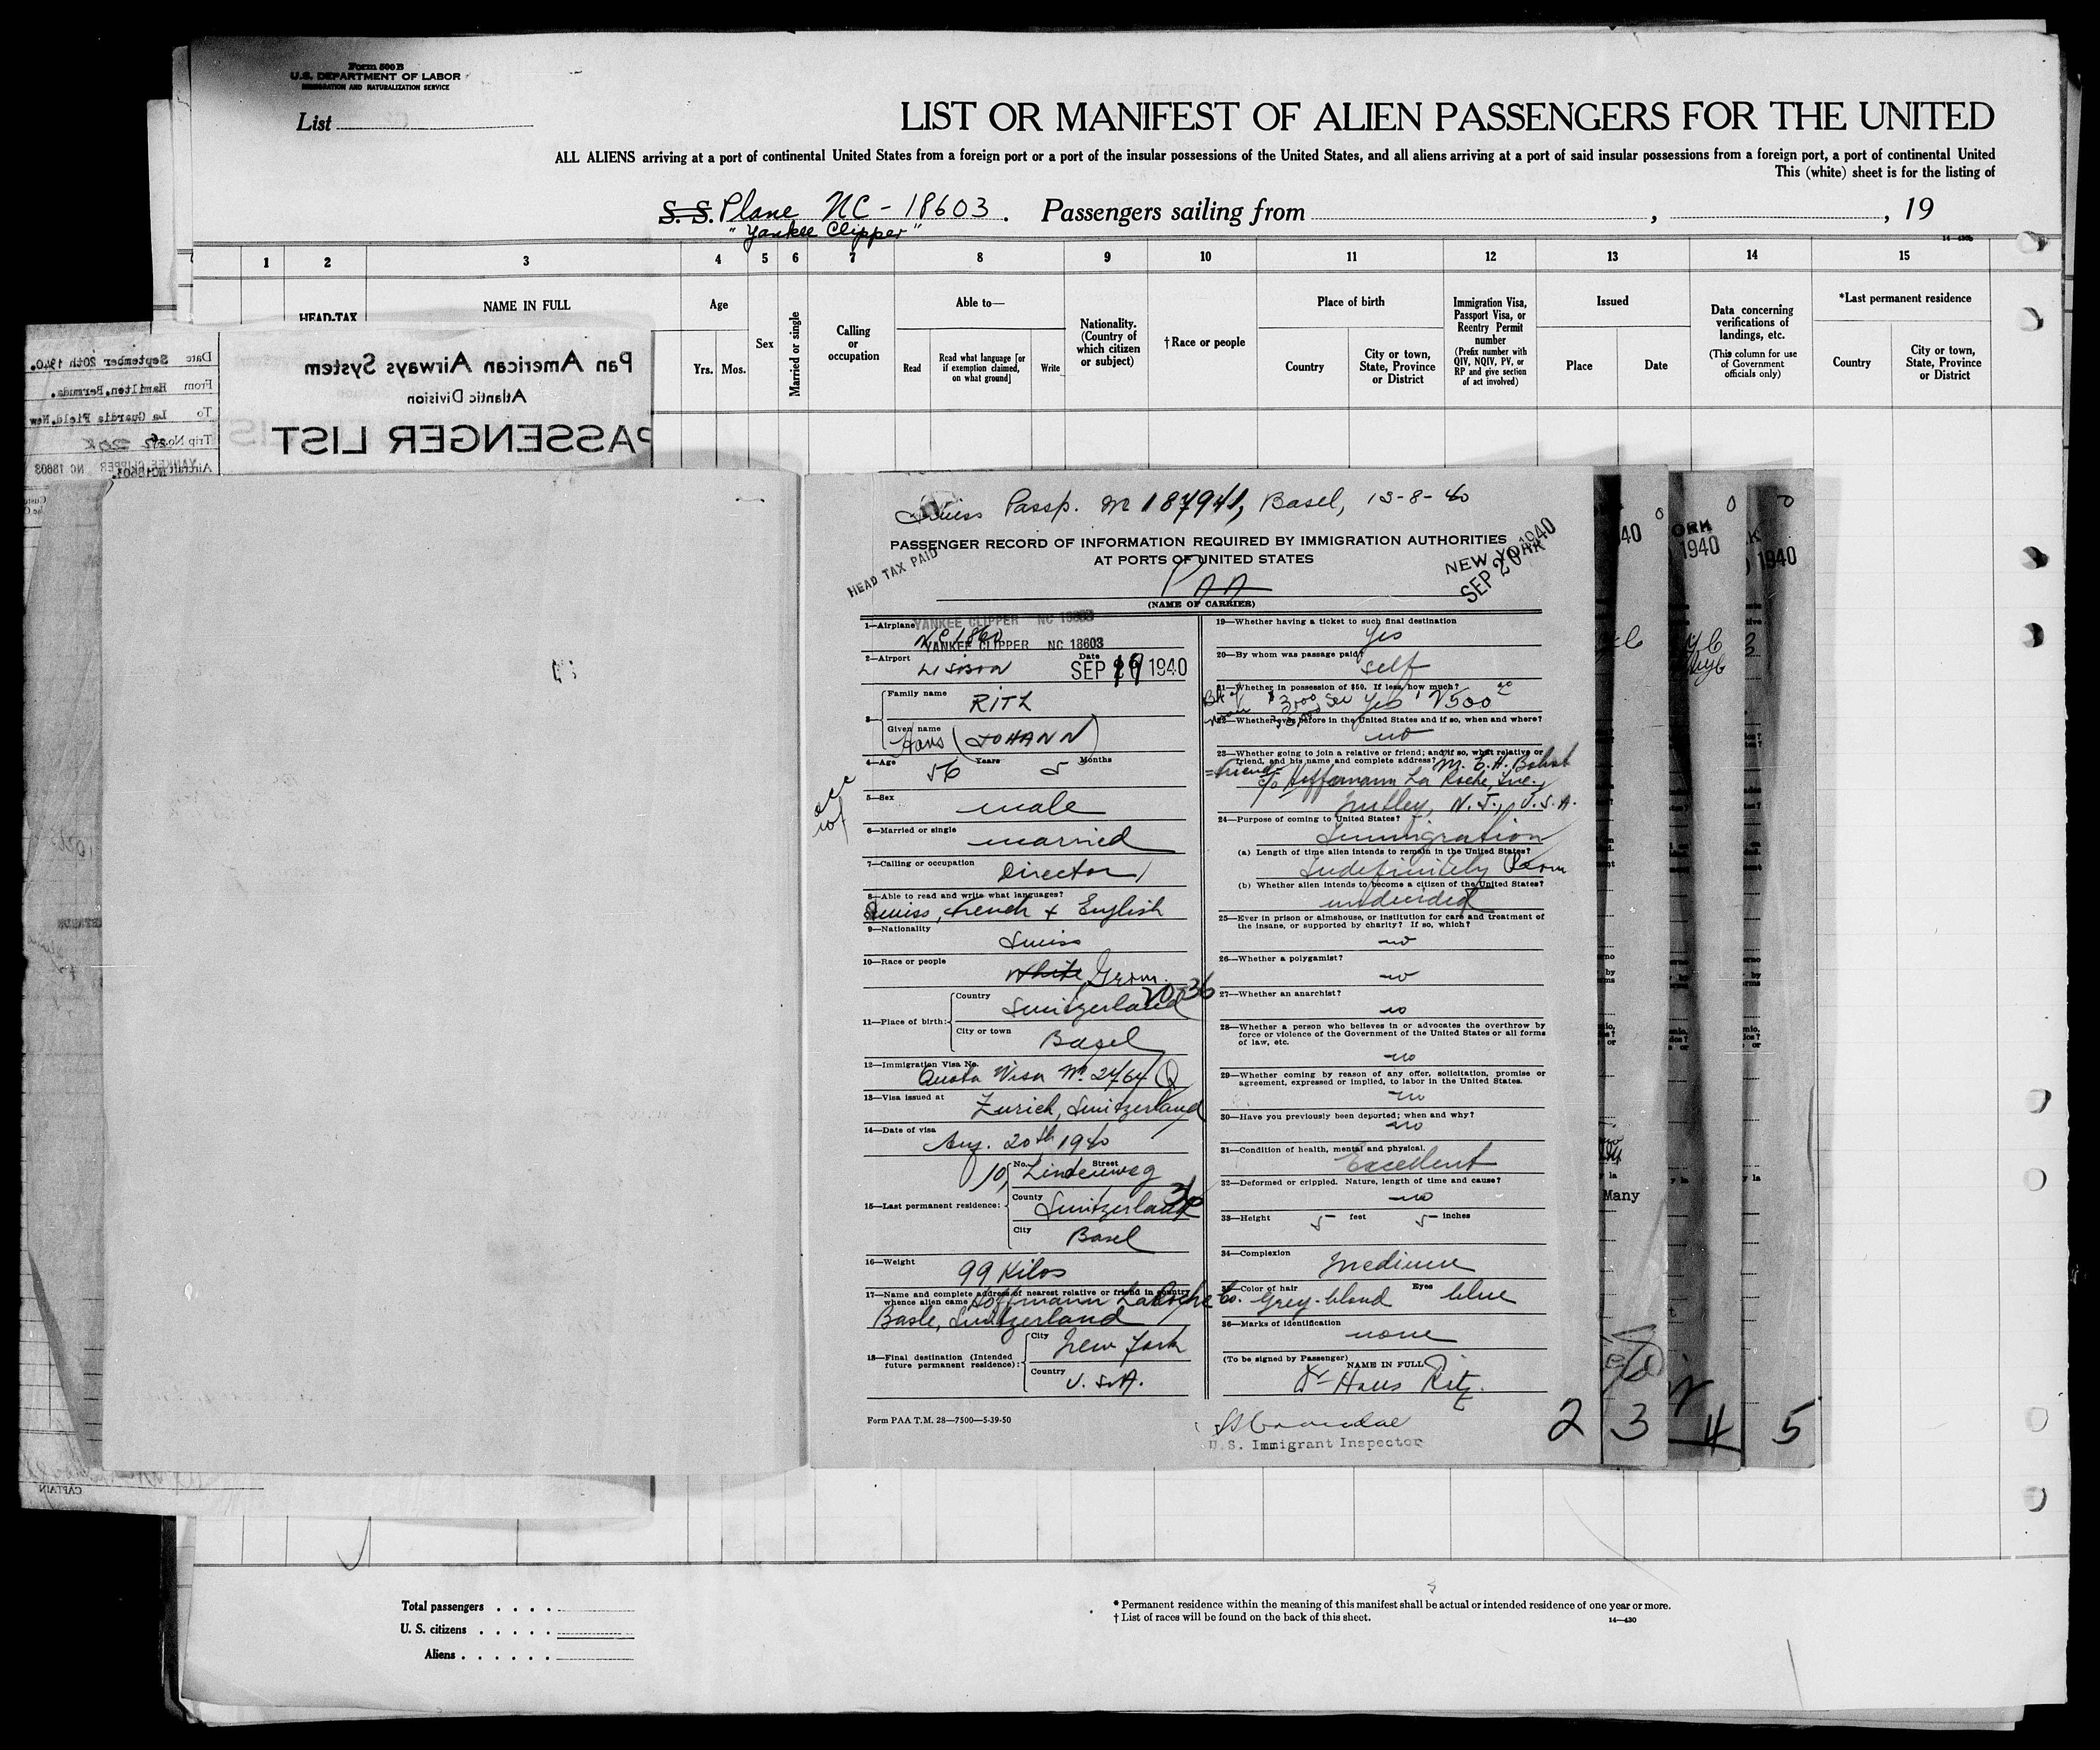 Form 500 B
U.S. DEPARTMENT OF LABOR
IMMIGRATION AND NATURALIZATION SERVICE
List
LIST OR MANIFEST OF ALIEN PASSENGERS FOR THE UNITED
ALL ALIENS arriving at a port of continental United States from a foreign port or a port of the insular possessions of the United States, and all aliens arriving at a port of said insular possessions from a foreign port, a port of continental United
This (white) sheet is for the listing of
S. S. Plane NC-18603. Passengers sailing from , , 19
"Yankee Clipper"
14-430b
1 2 3 4 5 6 7 8 9 10 11 12 13 14 15
HEAD-TAX
NAME IN FULL
Age
Yrs. Mos.
Sex
Married or single
Calling or occupation
Able to—
Read
Read what language [or if exemption claimed, on what ground]
Write
Nationality. (Country of which citizen or subject)
†Race or people
Place of birth
Country
City or town, State, Province or District
Immigration Visa, Passport Visa, or Reentry Permit number
(Prefix number with QIV, NQIV, PV, or RP and give section of act involved)
Issued
Place
Date
Data concerning verifications of landings, etc.
(This column for use of Government officials only)
*Last permanent residence
Country
City or town, State, Province or District
Date September 20th 1940.
From Hamilton, Bermuda.
To La Guardia Field, New
Trip No.
Aircraft NC 18603
YANKEE CLIPPER NC 18603
Pan American Airways System
Atlantic Division
PASSENGER LIST
CAPTAIN
Swiss Passp. No 187941, Basel, 13-8-40
PASSENGER RECORD OF INFORMATION REQUIRED BY IMMIGRATION AUTHORITIES
AT PORTS OF UNITED STATES
HEAD TAX PAID
NEW YORK
SEP 20 1940
PAA
(NAME OF CARRIER)
1—Airplane NC 1860
YANKEE CLIPPER NC 18603
YANKEE CLIPPER NC 18603
2—Airport Lisbon
Date SEP 19 1940
3— Family name RITZ
Given name Hans (JOHANN)
4—Age 56 Years 5 Months
5—Sex male
6—Married or single married
7—Calling or occupation Director
8—Able to read and write what languages?
Swiss, french + English
9—Nationality Swiss
10—Race or people White Germ.
11—Place of birth: Country Switzerland
City or town Basel
12—Immigration Visa No.
Quota Visa No. 2764 Q
13—Visa issued at Zurich, Switzerland
14—Date of visa Aug. 20th 1940
15—Last permanent residence: No. 10, Street Lindenweg
County Switzerland
City Basel
16—Weight 99 Kilos
17—Name and complete address of nearest relative or friend in country
whence alien came Hoffmann LaRoche Co.
Basle, Switzerland
18—Final destination (Intended future permanent residence): City New York
Country U.S.A.
Form PAA T.M. 28—7500—5-39-50
19—Whether having a ticket to such final destination
Yes
20—By whom was passage paid?
Self
21—Whether in possession of $50. If less, how much?
Yes
22—Whether ever before in the United States and if so, when and where?
no
23—Whether going to join a relative or friend; and if so, what relative or
friend, and his name and complete address?
friend M. E. H. Bobst
c/o Hoffmann La Roche, Inc.,
Nutley, N.J., U.S.A.
24—Purpose of coming to United States?
Immigration
(a) Length of time alien intends to remain in the United States?
Indefinitely Perm
(b) Whether alien intends to become a citizen of the United States?
undecided
25—Ever in prison or almshouse, or institution for care and treatment of
the insane, or supported by charity? If so, which?
no
26—Whether a polygamist?
no
27—Whether an anarchist?
no
28—Whether a person who believes in or advocates the overthrow by
force or violence of the Government of the United States or all forms
of law, etc.
no
29—Whether coming by reason of any offer, solicitation, promise or
agreement, expressed or implied, to labor in the United States.
no
30—Have you previously been deported; when and why?
no
31—Condition of health, mental and physical.
Excellent
32—Deformed or crippled. Nature, length of time and cause?
no
33—Height 5 feet 5 inches
34—Complexion Medium
35—Color of hair Grey-blond Eyes blue
36—Marks of identification
none
(To be signed by Passenger)
NAME IN FULL
Dr Hans Ritz.
U.S. Immigrant Inspector
2 3 4 5
1940
ORK
1940
1940
Many
Total passengers
U. S. citizens
Aliens
* Permanent residence within the meaning of this manifest shall be actual or intended residence of one year or more.
† List of races will be found on the back of this sheet.
14—430